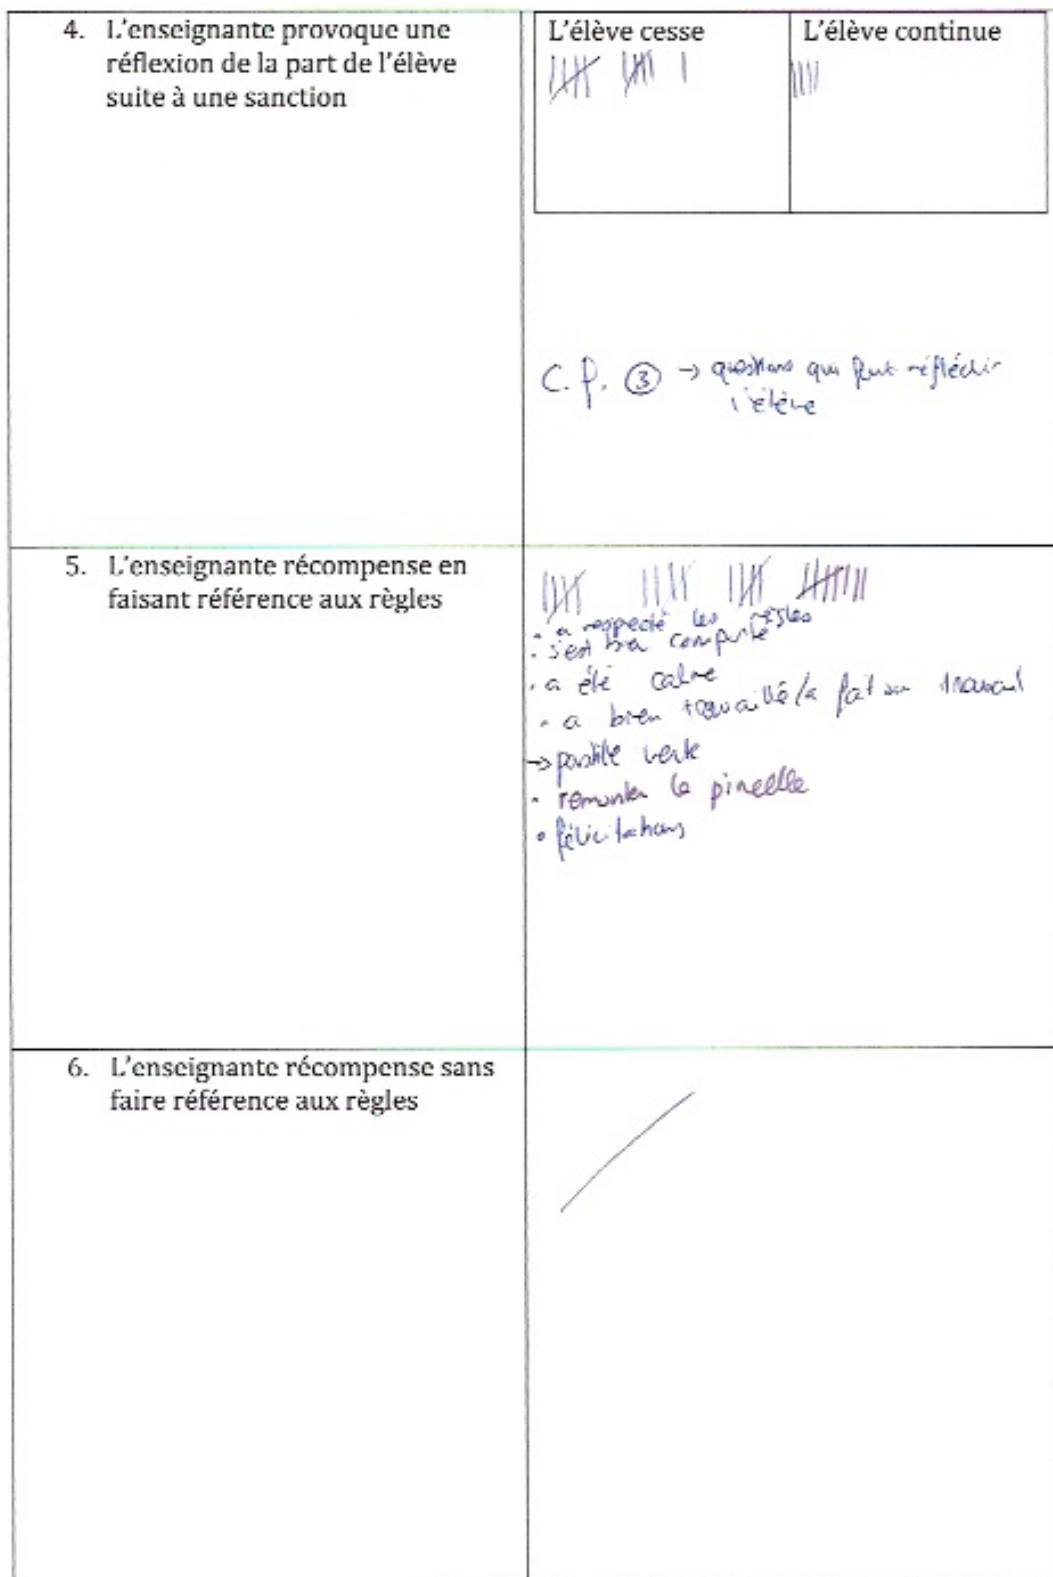 4. L'enseignante provoque une
réflexion de la part de l'élève
suite à une sanction
L'élève cesse
L'élève continue
C.P. ③ → questions qui font réfléchir
l'élève
5. L'enseignante récompense en
faisant référence aux règles
· a respecté les règles
· s'est bien comporté
· a été calme
· a bien travaillé/a fait son travail
→ pastille verte
· remonter la pincette
· félicitations
6. L'enseignante récompense sans
faire référence aux règles